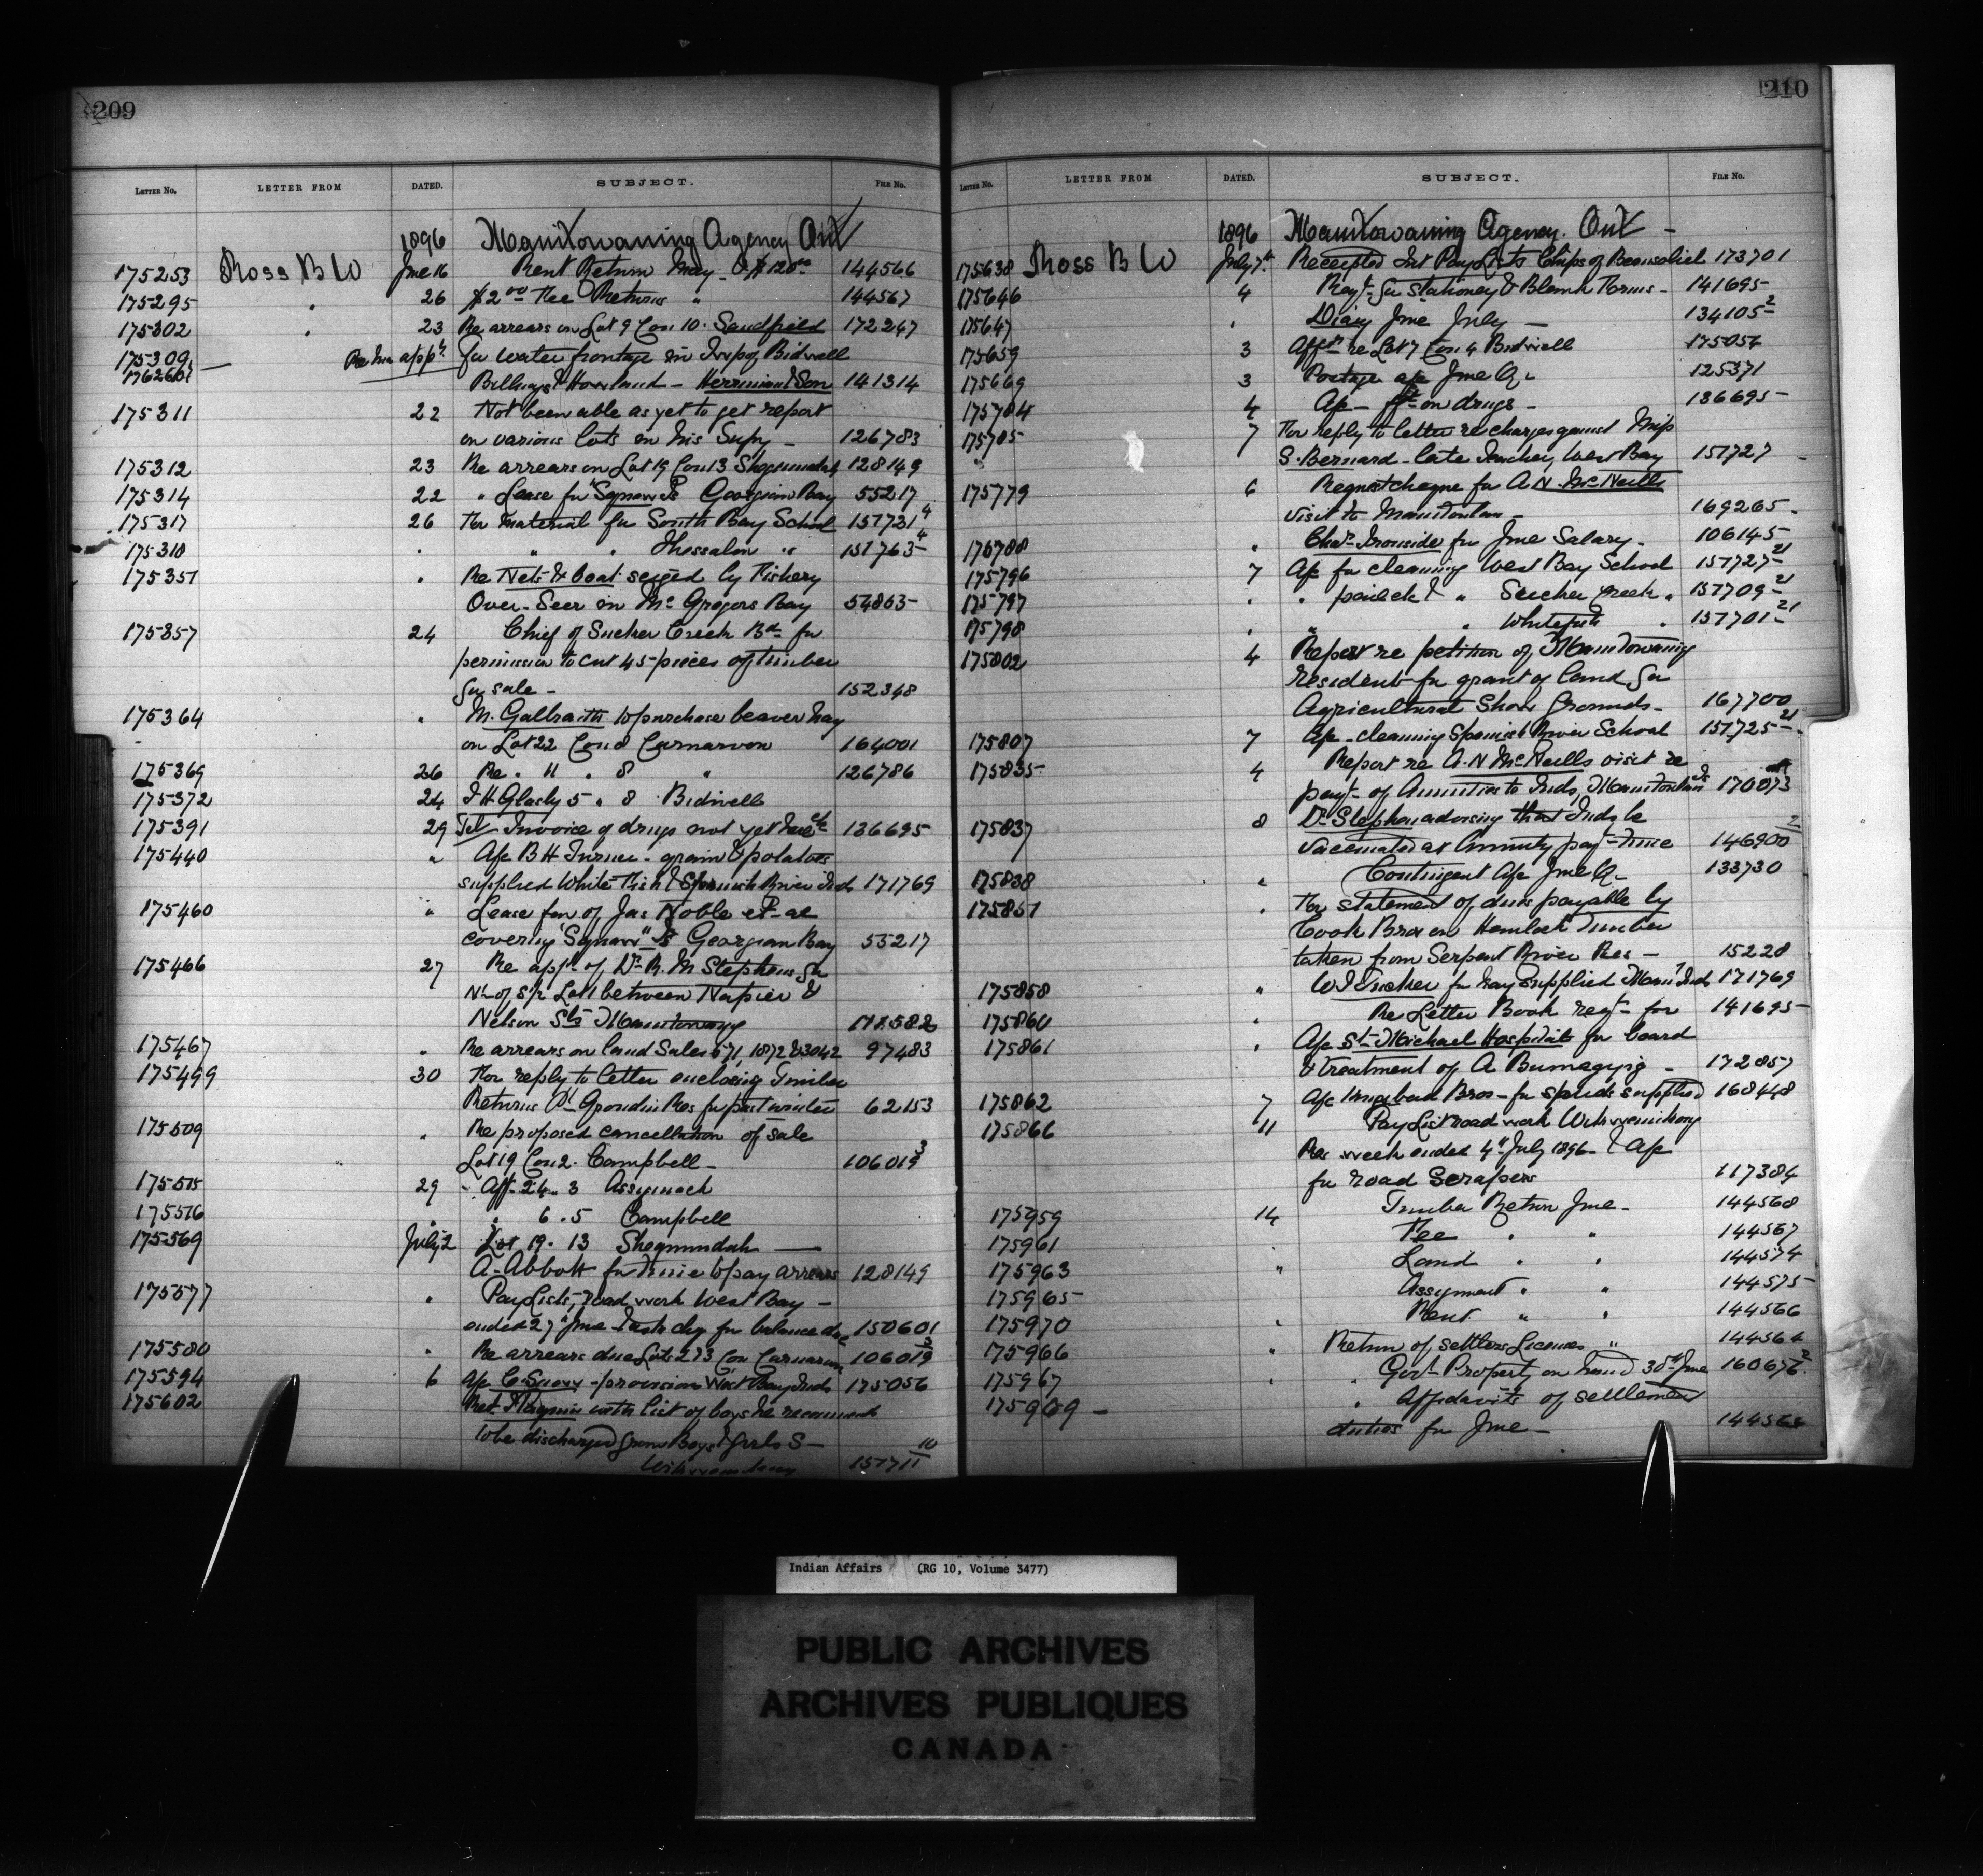 209
LETTER No. LETTER FROM DATED. SUBJECT. FILE No.
1896 Manitowaning Agency Ont
175253 Ross B W June 16 Rent Return May 144566
175295 " 26 $2 00 Fee Returns " 144567
175302 " 23 Re arrears on Lot 9 Con 10. Sandfield 172247
175309 Re his appn for water frontage in Twp of Bidwell
Billings & Howland - Herriman & Son 141314
175311 22 Not been able as yet to get report
on various lots in his Supy - 126783
175312 23 Re arrears on Lot 19 Con 13 Sheguiandah 128149
175314 22 " Lease for "Squaw" Is Georgian Bay 55217
175317 26 For material for South Bay School 151721 4
175318 " " " Thessalon " 151763 4
175351 " Re Nets & boat seized by Fishery
Over-Seer in Mc Gregors Bay 54863
175357 24 Chief of Sucker Creek Bd for
permission to cut 45 pieces of timber
for sale - 152348
175364 " M. Galbraith to purchase beaver hay
on Lot 22 Con 8 Carnarvon 164001
175369 26 Re " 11 " 8 " 126786
175372 24 5 " 8 Bidwell
175391 29 Tel Invoice of drugs not yet 136695
175440 " A/c B H Turner - grain & potatoes
supplied White Fish & Spanish River Inds 171769
175460 " Lease for of Jas Noble et al
covering "Squaw" Is Georgian Bay 55217
175466 27 Re appn of Dr R. M Stephens for
N½ of S½ Lot 1 between Napier &
Nelson Sts Manitowaning
175467 " Re arrears on land Sales 571, 1872 & 3042 97483
175499 30 For reply to letter enclosing Timber
Returns Pt Grondin Res for past winter 62153
175509 " Re proposed cancellation of sale
Lot 19 Con 2. Campbell - 106019 3
175515 29 - Afft 24 " 3 Assiginack
175516 " " 6 " 5 Campbell
175569 July 2 Lot 19 " 13 Sheguiandah
A. Abbott for time to pay arrears 128149
175577 " Pay Lists, road work West Bay -
ended 27th June & asks chq for balance due 150601
175580 " Re arrears due Lots 2 & 3 Con Carnarvon 106019 3
175594 6 A/c C. - provisions West Bay Inds 175056
175602 with list of boys he recommends
to be discharged from Boys & Girls S -
Wikwemikong 151711 10
210
LETTER No. LETTER FROM DATED. SUBJECT. FILE No.
1896 Manitowaning Agency. Ont -
175638 Ross B W July 7th Receipted Int Pay Lists Chips of Beausoliel 173701
175646 4 Reqt for Stationey & Blank Forms - 141695
175647 " Diary June July - 134105 2
175659 3 Afft re Lot 7 Con 4 Bidwell 175056
175669 3 Postage a/c June Qr 125371
175704 4 A/c - frt on drugs - 136695
175705 7 For reply to letter re charges against Miss
S. Bernard - late Teacher, West Bay 151727
175779 6 Request cheque for A N. McNeills
visit to Manitoulin - 169265
175788 " Chas Ironside for June Salary - 106145
175796 7 A/c for cleaning West Bay School 151727 21
175797 " " " Sucher Creek " 151709 21
175798 " " " Whitefish " 151701 21
175802 4 Report re petition of Manitowaning
residents for grant of land for
Agricultural Show Grounds - 167700
175807 7 A/c - cleaning Spanish River School 151725 21
175835 4 Report re A. N McNeills visit re
payt of Annuities to Inds, Manitoulin Is 170073
175837 8 Dr Stephen advising that Inds be
vaccinated at Annuity payt time 146900 2
175838 " Contingent A/c June Qr 133730
175851 " For statement of dues payable by
Cook Bros on Hemlock Timber
taken from Serpent River Res - 15228
175858 " W J Tucker for hay supplied Mani Inds 171769
175860 " Re Letter Book reqt for 141695
175861 " A/c St Michael Hospital for board
& treatment of A 172857
175862 7 A/c Bros - for supplied 168448
175866 11 Pay List road work Wikwemikong
Res week ended 4th July 1896 - & A/c
for road Scrapers 117384
175959 14 Timber Return June - 144568
175961 Fee " " 144567
175963 " Land " " 144574
175965 Assignment " " 144575
175970 " Rent " " 144566
175966 " Return of settlers Licenses " 144564
175967 " " Govt Property on hand 30th June 160676 2
175969 - " Affidavits of settlement
duties for June - 144565
Indian Affairs (RG 10, Volume 3477)
PUBLIC ARCHIVES
ARCHIVES PUBLIQUES
CANADA